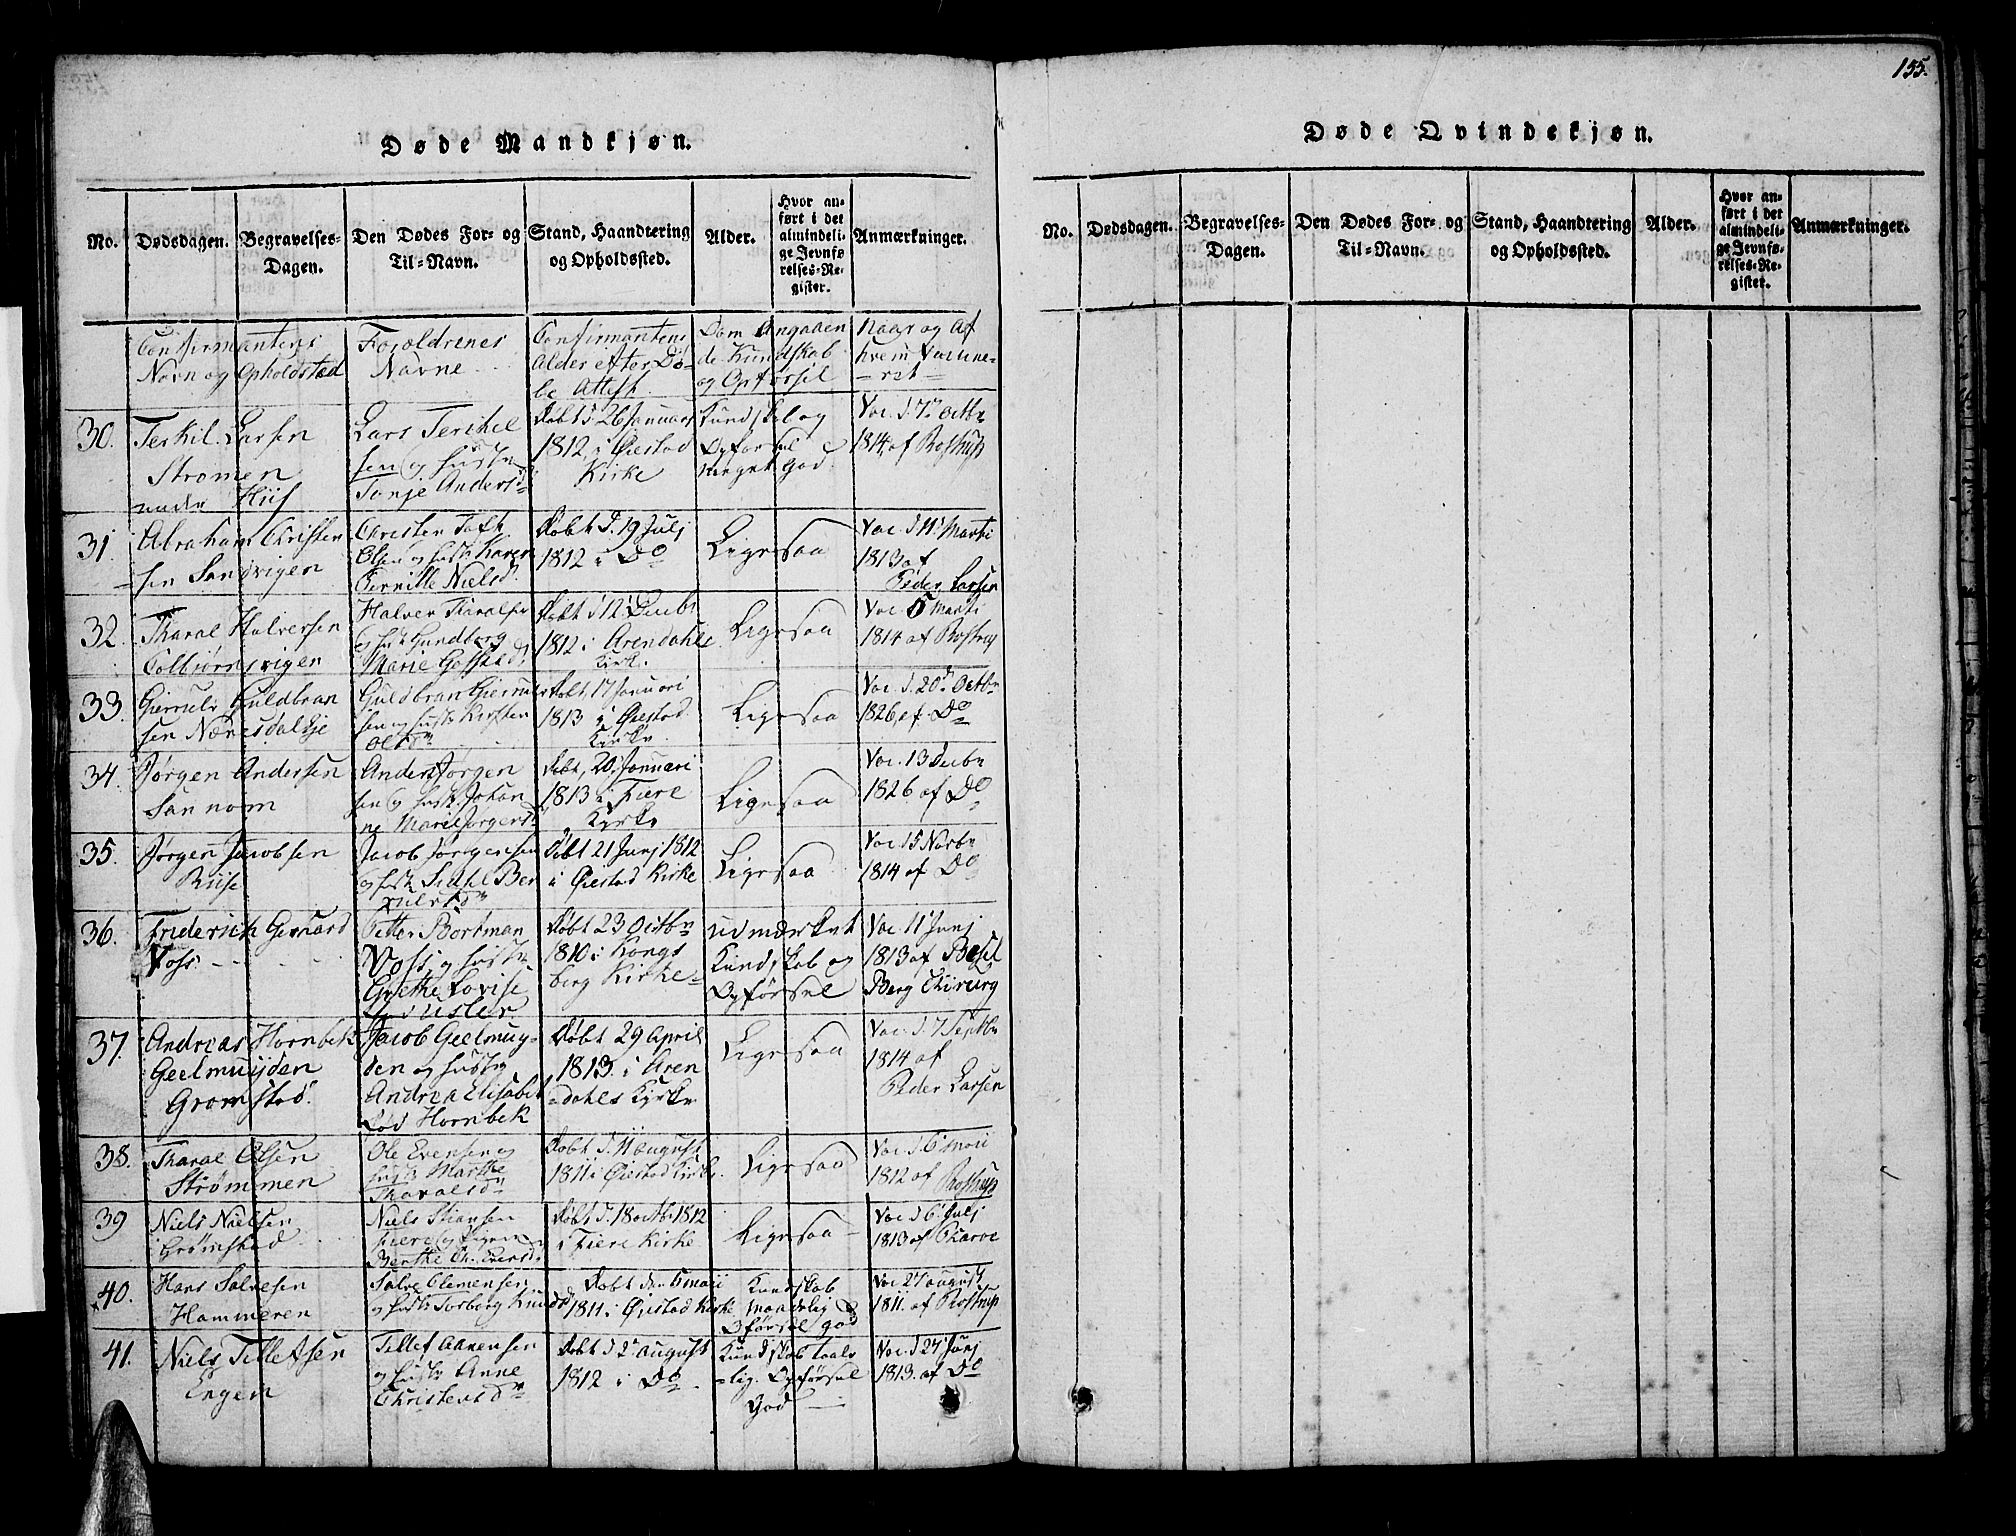 155.
Døde Mandkjøn.
No.
Dødsdagen.
Begravelses-
Dagen.
Den Dødes For- og
Til-Navn.
Stand, Haandtering
og Opholdssted.
Alder.
Hvor an-
ført i det
almindeli-
ge Jevnfø-
relses-Re-
gister.
Anmærkninger.
Confirmantens
Navn og Opholdsted
Forældrenes
Navne
Confirmantens
Alder efter Dø-
be Attest
Dom Angaaen
de Kundskab
og Opførsel
Naar og Af
hvem Vaccine-
ret
30.
Terkil Larsen
Strømen
under Hiis
Lars Terchel
sen og hustr
Tonje Andersd
Døbt d. 26 Januar
1812, i Øiestad
Kirke
Kundskab og
Opførsel
meget God.
Vac. d. 7de Octbr
1814, af Rostrup
31.
Abraham Christen
sen Sandvigen
Christen Toft
Olsen og hustr Karen
Pernille Nielsd.
Døbt d. 19 Julj
1812 i Do
Ligesaa
Vac. d. 11 Marti
1813 af
Peder Larsen
32.
Tharal Halversen
Colbjørnsvigen
Halver Tharalsen
og hustr Gundborg
Marie Gosstads
Døbt d. 12 Decbr
1812 i Arendahls
Kirk.
Ligesaa
Vac. 5 Marti
1814 af Rostrup
33.
Gjerruls Guldbran
sen Nævesdal Eje
Guldbran Gjerruls
sen og hustr Kirsten
Olsdr
Døbt, 17 Januari
1813 i Øiestad
Kirke
Ligesaa
Vac. d. 20de Octbr
1826, af Do
34.
Jørgen Andersen
Sannom
Anders Jørgen
sen og hustr Johan
ne Marie Jørgensd
Døbt, 20, Januari
1813 i Fiere
Kyrke
Ligesaa
Vac. 13 Decbr
1826 af Do
35.
Jørgen Jacobsen
Riise
Jacob Jørgensen
og hustr Sidsel Ber
Døbt 21 Junj 1812
i Øiestad Kirke
Ligesaa
Vac. 15 Novbr
1814 af Do
36.
Friderich Gerhard
Voss
Petter Bortman
Voss og hustr
Grethe Lovise
Døbt 23 Octbr
1810 i Kongs
berg Kirke
udmærket
Kundskab og
Opførsel
Vac. 11 Junj
1813 af Besel
Berg Chirurg
37.
Andreas Hornbek
Geelmuijden
Gromstad.
Jacob Geelmuy-
den og hustr
Andrea Elisabet
fød Hornbek
Døbt 29 April
1813. i Aren
dahls Kyrke
Ligesaa
Vac. d. 7 Septbr
1814 af
Peder Larsen
38.
Tharal Olsen
Strømmen
Ole Evensen og
hustr Marthe
Tharalsdr
Døbt d. 11 august
1811 i Øiestad Kirke.
Ligesaa
Vac. d. 6 maii
1812 af Rostrup
39
Niels Nielsen
Grømstad
Niels Stiansen
Fiere og Pigen
Berthe Chr. Eversd.
Døbt d. 18 octbr 1812
i Fiere Kirke
Ligesaa
Vac d 6 Julj
1813 af Tharve
40.
Hans Salvesen
Hammeren
Salve Clemensen
og hustr Torborg Knudsd
Døbt den 5 maii
1811 i Øiestad Kirke
Kundskab
maadelig
Opførsel god
Vac 27 august
1811. af Rostrup
41.
Niels Tellefsen
Engen
Tellef Aanensen
og hustr Anne
Christensdr
Døbt d 2 august
1812 i Do
Kundskab taale
lig. Opførsel
God
Vac. d 27 Junj
1813. af Do
Døde Qvindekjøn.
No.
Dødsdagen.
Begravelses-
Dagen.
Den Dødes For- og
Til-Navn.
Stand, Haandtering
og Opholdssted.
Alder.
Hvor an-
ført i det
almindeli-
ge Jevnfø-
relses-Re-
gister.
Anmærkninger.